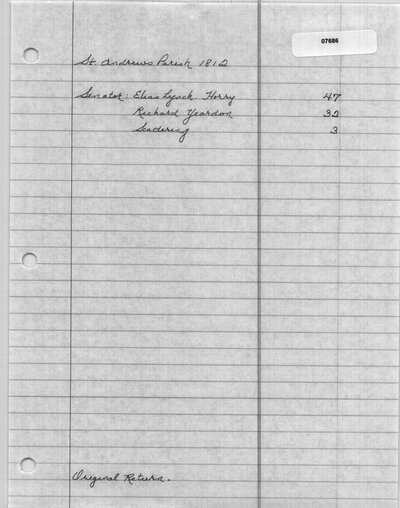 07686
St. Andrews Parish 1812
Senator: Elias Lynch Horry 47
Richard Yeardon 32
Scattering 3
Original Return.